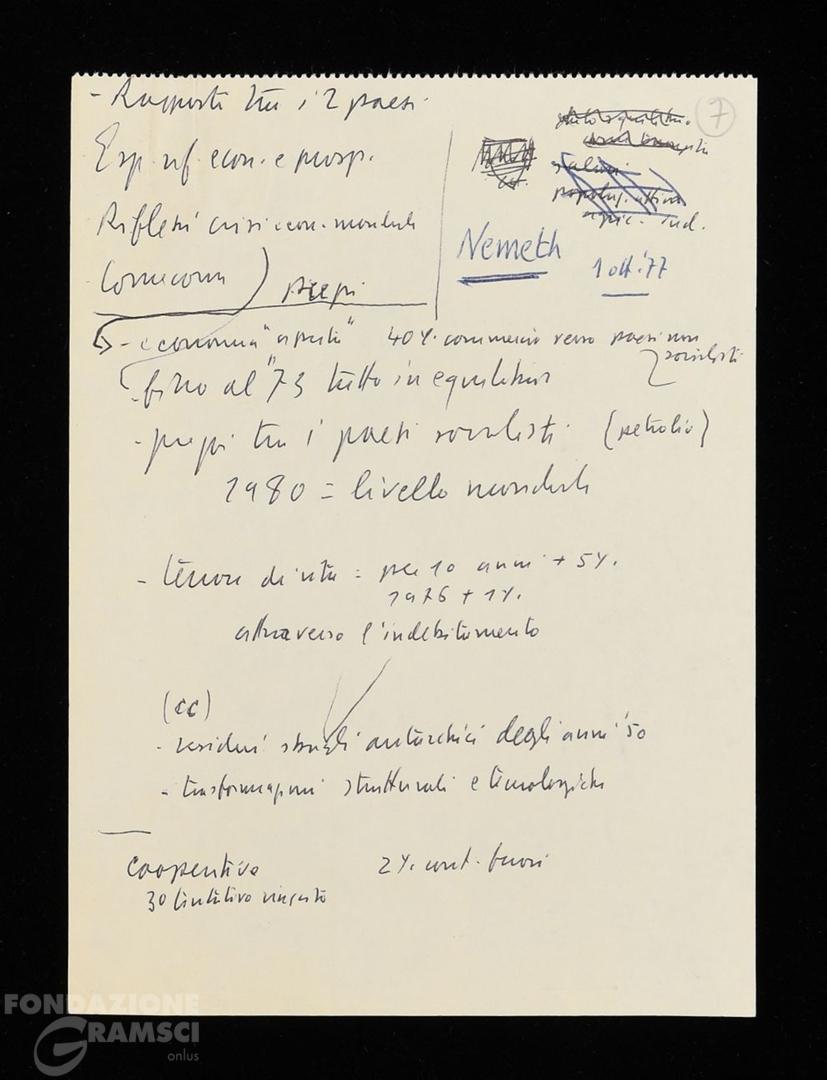 - Rapporti tra i 2 paesi
Esp. rif. econ. e prosp.
Riflessi crisi econ. mondiale
Comecon) prezzi
7
salari
agric. ind.
Nemeth
1 ott. '77
- economia "aperta" 40%. commercio verso paesi non socialisti
- fino al '73 tutto in equilibrio
- prezzi tra i paesi socialisti (petrolio)
1980 = livello mondiale
- tenore di vita = per 10 anni + 5%.
1976 + 1%.
attraverso l'indebitamento
(cc)
- residui sbagli autarchici degli anni '50
- trasformazioni strutturali e tecnologiche
Cooperative
2%. cont. fuori
30 tentativo riuscito
FONDAZIONE
GRAMSCI
onlus